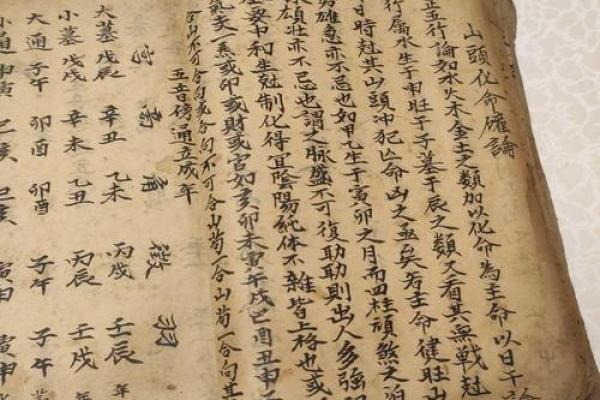 山頭化命確論
正五行論如水火木金土之類加以化命為主命以日干論
行屬水生于申旺于子墓于辰之類又看其無戰尅
日時尅其山頭冲犯凶命凶之亟矣若主命健旺山
雄急亦不忌也如甲乙生于寅卯之月而四柱頑煞之
雄壯亦不忌也謂之脉盛不可復助助則出人多強
中和生尅制化得宜陰陽純体不雜皆上格也或
氣亥一焦或卯或財或官如亥卯未寅午戌巳酉丑申
合山不可合向或合向不可合山茍一合山茍一合向其
五音傍通五成年
宮 商 角 徵 羽
大墓戊辰 辛丑 乙未 丙戌 壬辰 年
小墓戊戌 辛未 乙丑 丙辰 壬戌 年
大通子午 卯酉 卯酉 子午 子午
小通申寅 巳亥 巳亥 寅申 寅申